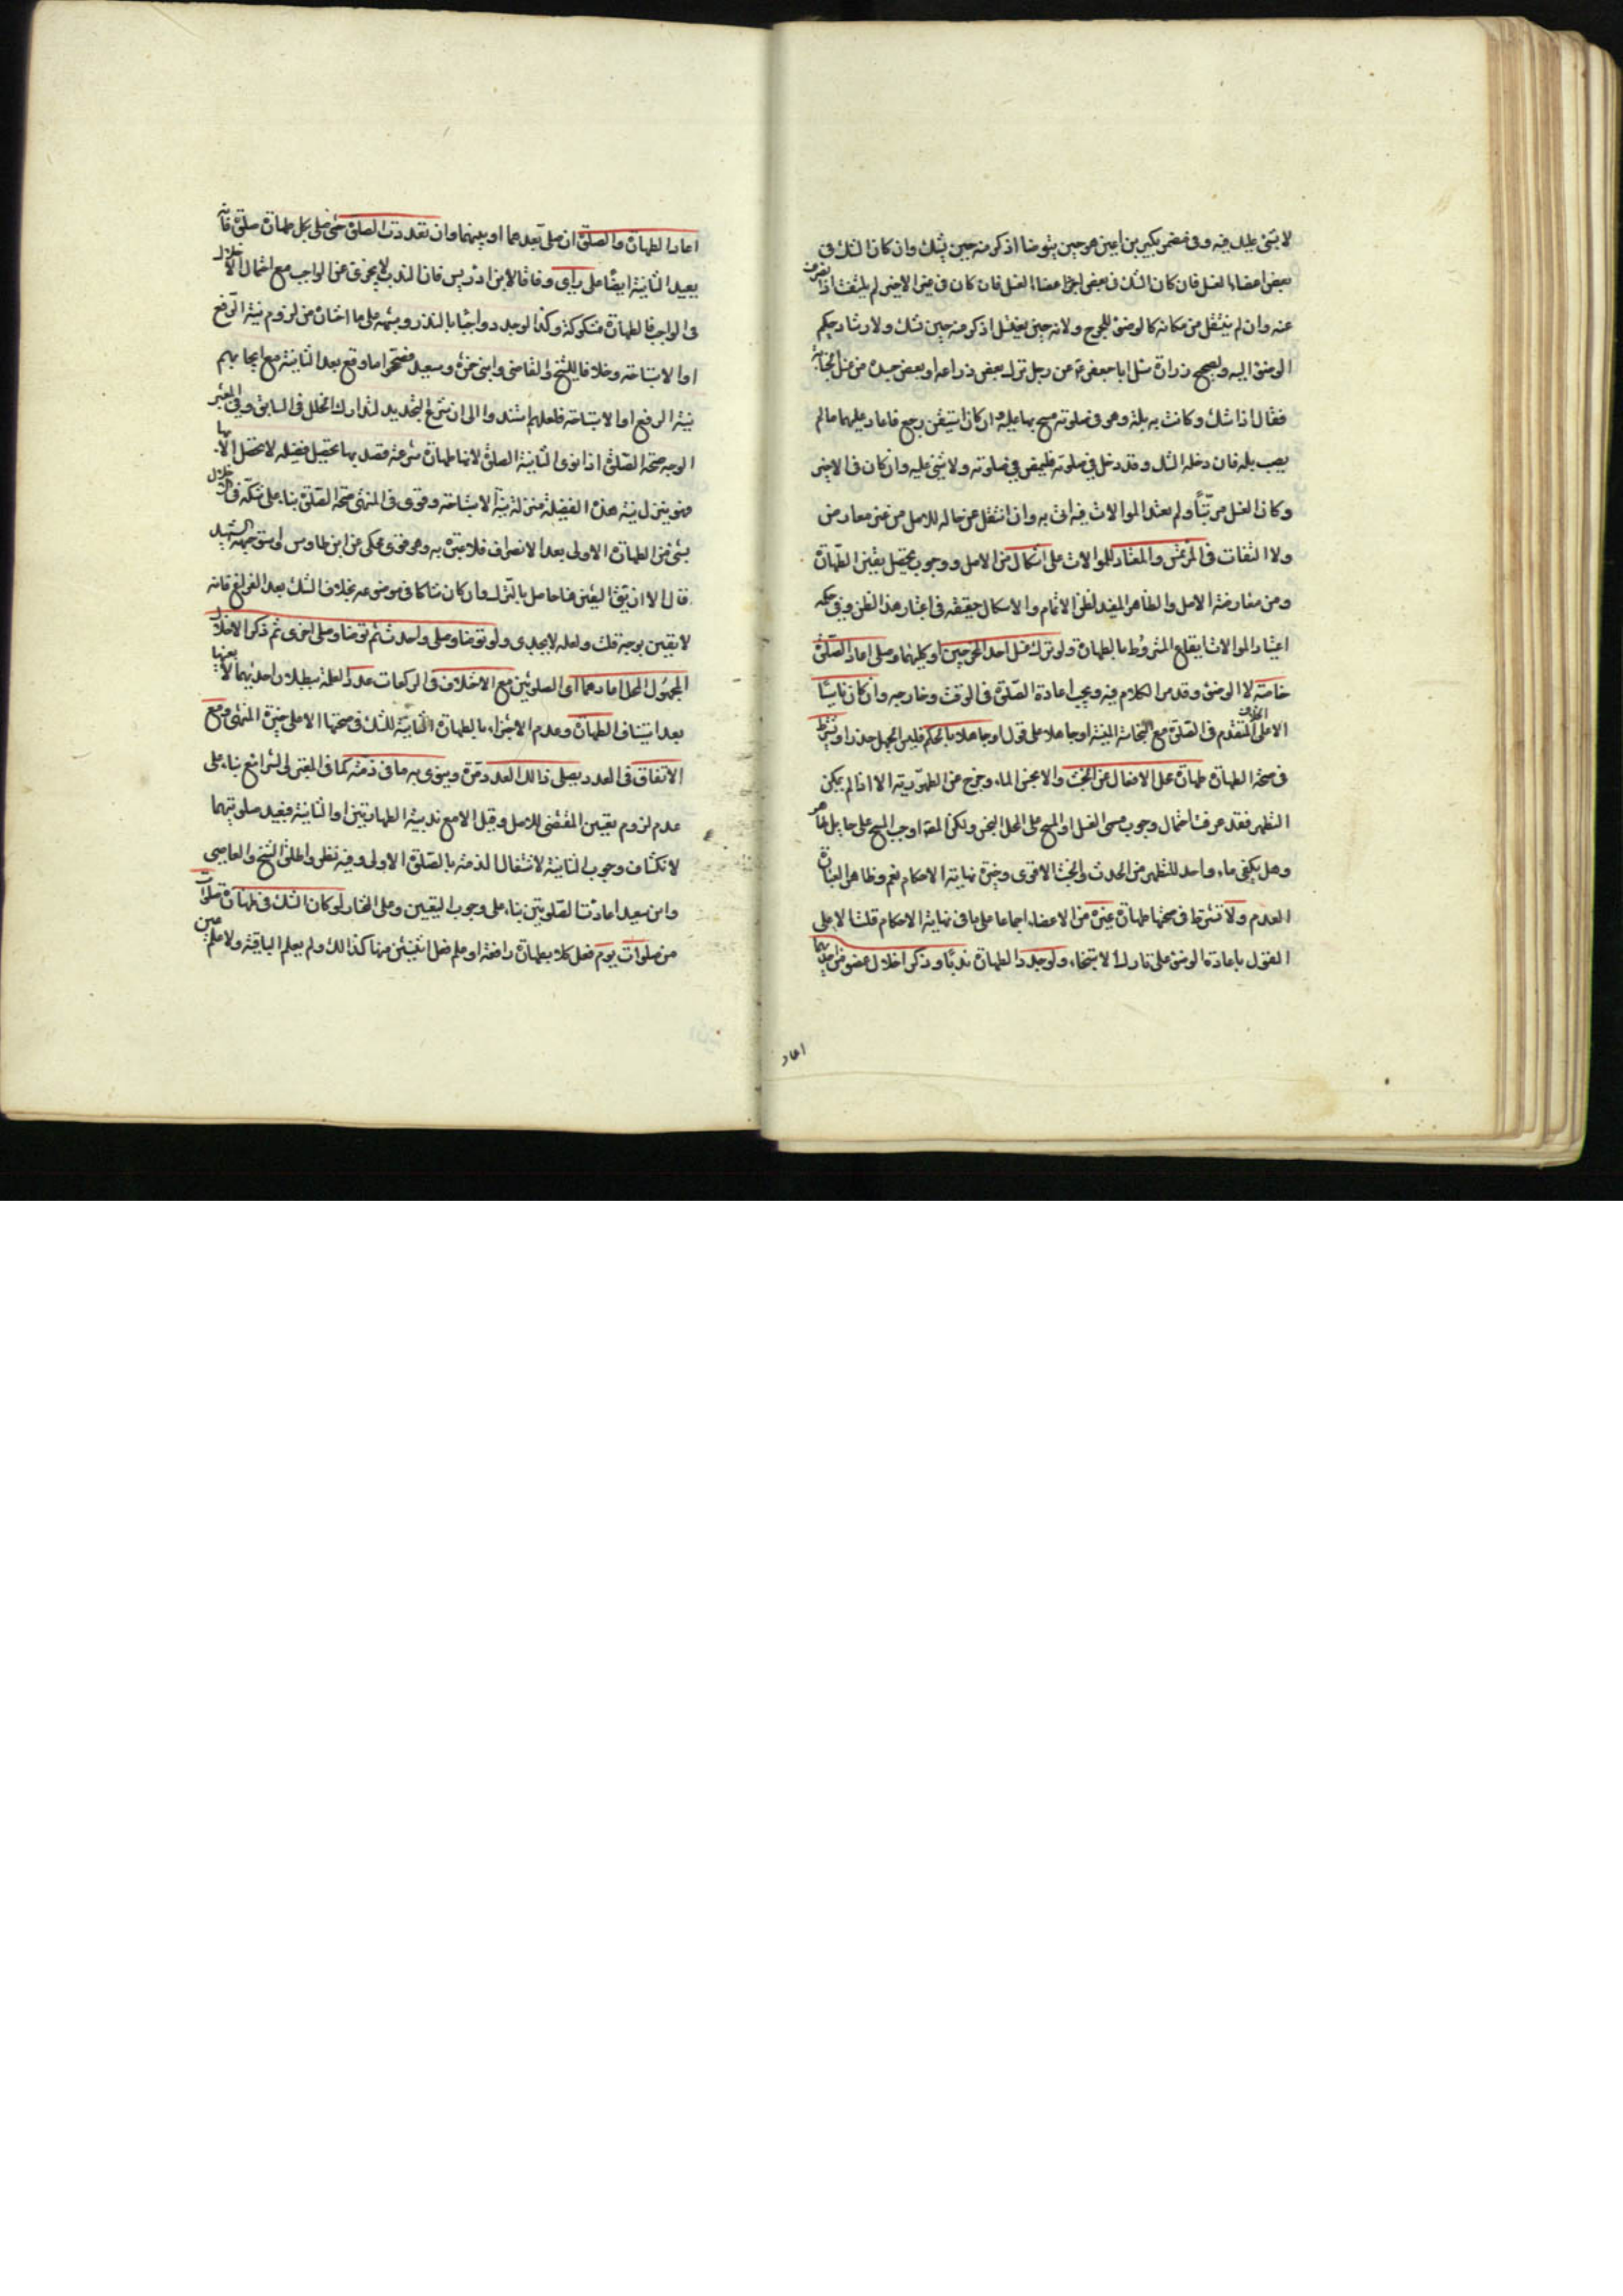 لا شيء عليك فيه وفي مضمر بكير بن اعين هو حين يتوضا اذكر منه حين يشك وان كان الشك في
بعض اعضاء الغسل فان كان الشك في بعض اعضاء الغسل فان كان في غير الاخير لم يلتفت اذا انصرف
عنه وان لم ينتقل من مكانه كالوضوء للحرج ولانه حين يغتسل اذكر منه حين يشك ولارشاد حكم
الوضوء اليه ولصحيح زرارة سئل ابا جعفر ع عن رجل ترك بعض ذراعه او بعض جسده من غسل الجنابة
فقال اذا شك وكانت به بلة وهو في صلوته مسح بها عليه وان كان استيقن رجع فاعاد عليهما ما لم
يصب بلة فان دخله الشك وقد دخل في صلوته فليمض في صلوته ولا شيء عليه وان كان في الاخير
وكان الغسل مرتبا ولم يعتد الموالاة فيه اتى به وان انتقل عن حاله للاصل من غير معارض
ولا التفات في المرتمس والمعتاد للموالاة على اشكال من الاصل ووجوب تحصيل يقين الطهارة
ومن معارضة الاصل والظاهر المفيد لظن الاتمام والاشكال حقيقة في اعتبار هذا الظن وفي حكم
اعتياد الموالاة ايقاع المشروط بالطهارة ولو ترك غسل احد المخرجين او كليهما وصلى اعاد الصلوة
خاصة لا الوضوء وقد مر الكلام فيه ويجب اعادة الصلوة في الوقت وخارجه وان كان ناسيا
الا على الخلاف المتقدم في الصلوة مع النجاسة المنسية او جاهلا على قول او جاهلا بالحكم فليس الجهل عذرا ويشترط
في صحة الطهارة طهارة محل الافعال عن الخبث والا نجس الماء وخرج عن الطهورية الا اذا لم يمكن
التطهر فقد عرفت احتمال وجوب مسمى الغسل او المسح على المحل النجس ولكن المص اوجب المسح على حائل طاهر
وهل يكفي ماء واحد للتطهر من الحدث والخبث الاقوى وخيرة نهاية الاحكام نعم وظاهر العبارة
العدم ولا تشترط في صحتها طهارة غيره من الاعضاء اجماعا على ما في نهاية الاحكام قلت الا على
القول باعادة الوضوء على تارك الاستنجاء ولو جدد الطهارة ندبا وذكر اخلال عضو من احديهما
اعاد
اعاد الطهارة والصلوة ان صلى بعدهما او بينهما وان تعددت الصلوة حتى صلى بكل طهارة صلوة فانه
يعيد الثانية ايضا على رأي وفاقا لابن ادريس فان الندب لا يجزي عن الواجب مع احتمال الاخلال
في الواجب فالطهارة مشكوكة وكذا لو جدد واجبا بالنذر وشبهه على ما اختاره من لزوم نية الرفع
او الاستباحة وخلافا للشيخ والقاضي وابني حمزة وسعيد فصححوا ما وقع بعد الثانية مع ايجابهم
نية الرفع او الاستباحة فلعلهم استندوا الى ان شرع التجديد لتدارك الخلل في السابق وفي المعتبر
الوجه صحة الصلوة اذا نوى الثانية الصلوة لانها طهارة شرعية قصد بها تحصيل فضيلة لا تحصل الا بها
فهو ينزل نية هذه الفضيلة منزلة نية الاستباحة وقوى في المنتهى صحة الصلوة بناء على شكه في اخلال
شيء من الطهارة الاولى بعد الانصراف فلا عبرة به وهو فتوى محكي عن ابن طاوس واستوجهه الشهيد
قال الا ان يق اليقين هنا حاصل بالترك وان كان شاكا في موضوعه بخلاف الشك بعد الفراغ فانه
لا يقين بوجه قلت ولعله لا يجدي ولو توضا وصلى واحدث ثم توضا وصلى اخرى ثم ذكر الاخلال
المجهول المحل اعادهما اي الصلوتين مع الاختلاف في الركعات عددا لعلمه ببطلان احديهما لا بعينها
بعد استيناف الطهارة وعدم الاجتزاء بالطهارة الثانية للشك في صحتها الا على خيرة المنتهى ومع
الاتفاق في العدد يصلي ذلك العدد مرة وينوي به ما في ذمته كما في المعتبر والشرائع بناء على
عدم لزوم تعيين المقتضي للاصل وقيل الا مع ندبية الطهارتين او الثانية فيعيد صلوتيهما
لانكشاف وجوب الثانية لاشتغال الذمة بالصلوة الاولى وفيه نظر واطلق الشيخ والقاضي
وابن سعيد اعادة الصلوتين بناء على وجوب اليقين وعلى المختار لو كان الشك في طهارة صلوات
من صلوات يوم فعل كلا بطهارة رافعة او علم فعل اثنتين منها كذلك ولم يعلم الباقية ولا علم عين